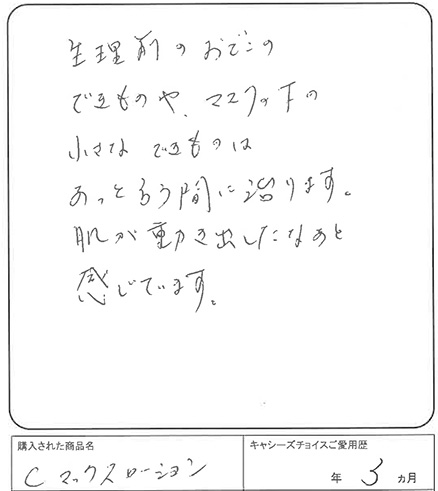 生理前のおでこの
できものや、マスクの下の
小さな できものは
あっとゆう間に治ります。
肌が動き出したなぁと
感じています。
購入された商品名
キャシーズチョイスご愛用歴
C マックスローション
年 3 ヵ月